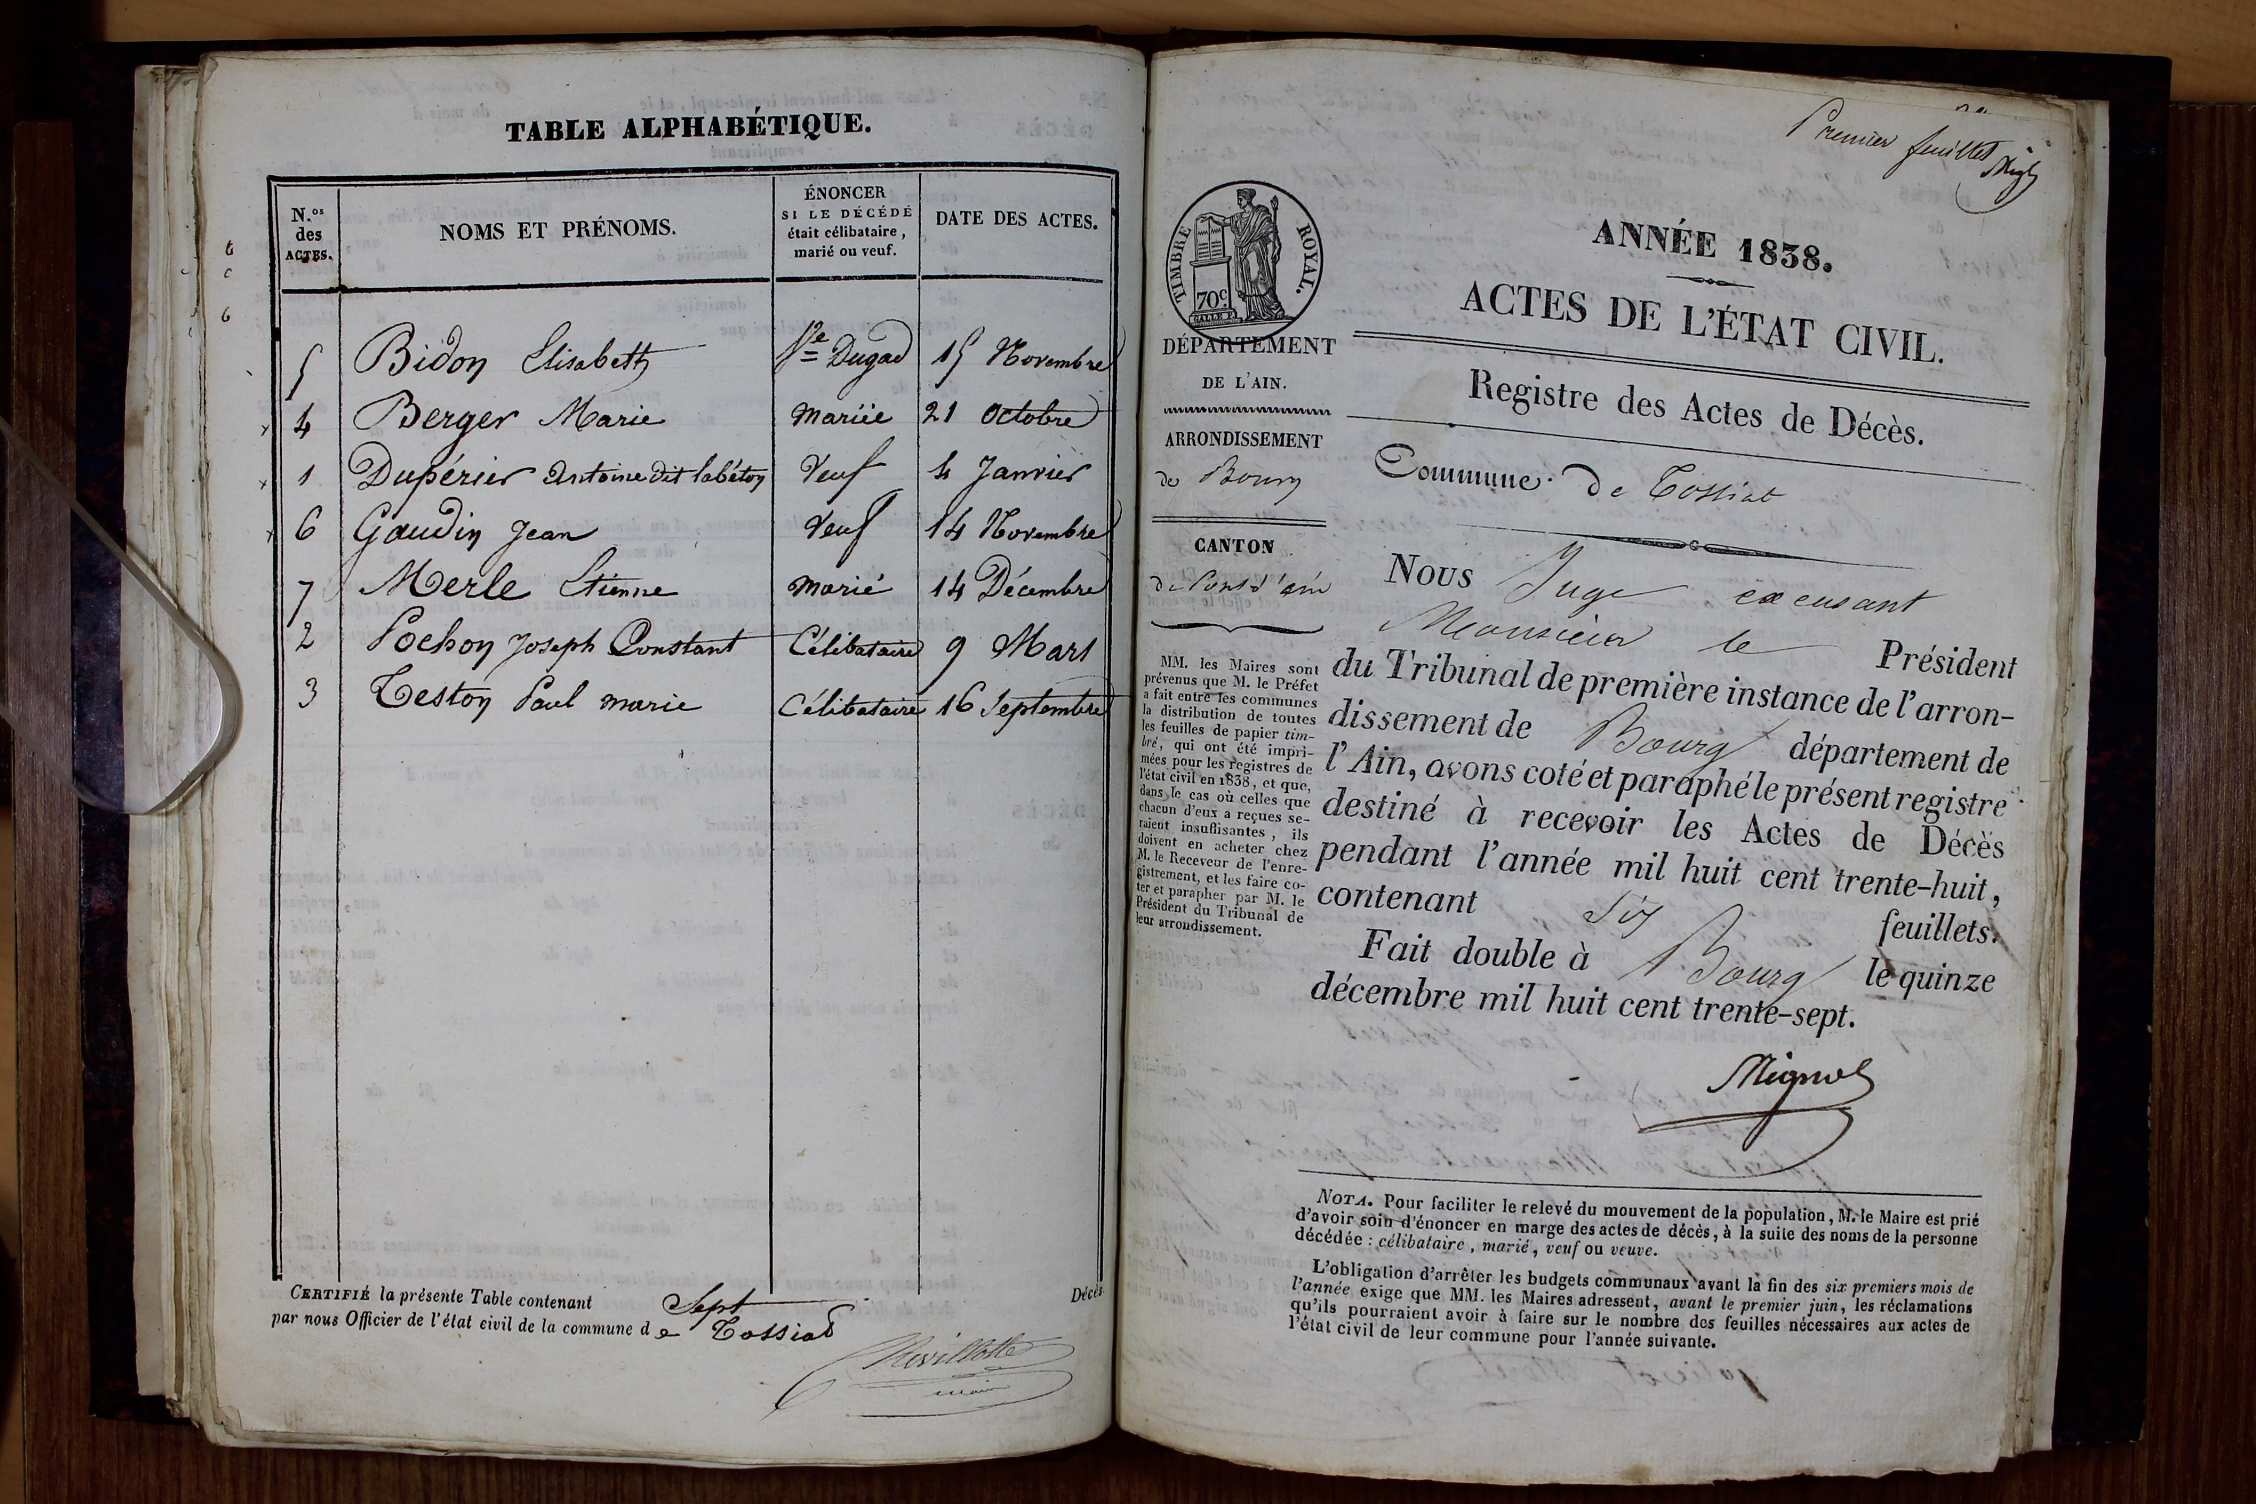 TABLE ALPHABÉTIQUE.
N.os des ACTES.
NOMS ET PRÉNOMS.
ÉNONCER
SI LE DÉCÉDÉ
était célibataire,
marié ou veuf.
DATE DES ACTES.
5 Bidon Elisabeth Ve Dugad 15 Novembre
4 Berger Marie Mariée 21 Octobre
1 Dupérier Antoine dit labéton Veuf 4 Janvier
6 Gaudin Jean Veuf 14 Novembre
7 Merle Etienne Marié 14 Décembre
2 Pochon Joseph Constant Célibataire 9 Mars
3 Teston Paul marie Célibataire 16 Septembre
CERTIFIÉ la présente Table contenant Sept Décès
par nous Officier de l'état civil de la commune de Tossiat
maire
Premier feuillet
TIMBRE ROYAL.
70c.
DÉPARTEMENT
DE L'AIN.
ARRONDISSEMENT
de Bourg
CANTON
de Pont d'ain
MM. les Maires sont
prévenus que M. le Préfet
a fait entre les communes
la distribution de toutes
les feuilles de papier tim-
bré, qui ont été impri-
mées pour les registres de
l'état civil en 1838, et que,
dans le cas où celles que
chacun d'eux a reçues se-
raient insuffisantes, ils
doivent en acheter chez
M. le Receveur de l'enre-
gistrement, et les faire co-
ter et parapher par M. le
Président du Tribunal de
leur arrondissement.
ANNÉE 1838.
ACTES DE L'ÉTAT CIVIL.
Registre des Actes de Décès.
Commune de Tossiat
Nous Juge excusant
Monsieur le Président
du Tribunal de première instance de l'arron-
dissement de Bourg département de
l'Ain, avons coté et paraphé le présent registre
destiné à recevoir les Actes de Décès
pendant l'année mil huit cent trente-huit,
contenant Six feuillets.
Fait double à Bourg le quinze
décembre mil huit cent trente-sept.
Mignot
NOTA. Pour faciliter le relevé du mouvement de la population, M. le Maire est prié
d'avoir soin d'énoncer en marge des actes de décès, à la suite des noms de la personne
décédée : célibataire, marié, veuf ou veuve.
L'obligation d'arrêter les budgets communaux avant la fin des six premiers mois de
l'année exige que MM. les Maires adressent, avant le premier juin, les réclamations
qu'ils pourraient avoir à faire sur le nombre des feuilles nécessaires aux actes de
l'état civil de leur commune pour l'année suivante.